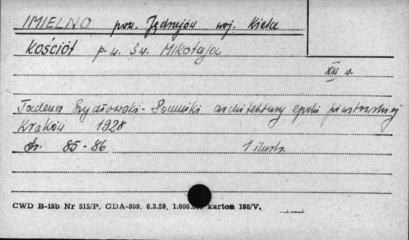 IMIELNO pow. Jędrzejów woj. Kielce
Kościół p.w. św. Mikołaja
XIII w.
Tadeusz Szydłowski - Pomniki architektury epoki piastowskiej
Kraków 1928
Str. 85-86 1 ilustr.
CWD B-15b Nr 515/P. GDA-809. 6.3.59. 1.000.000 karton 180/V.